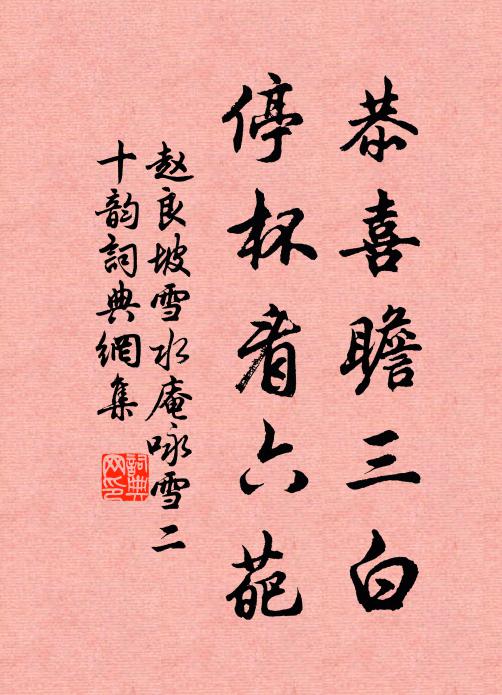 恭喜瞻三白
停杯看六葩
赵良坡雪水庵咏雪二
十韵詞典網集
詞典
网印